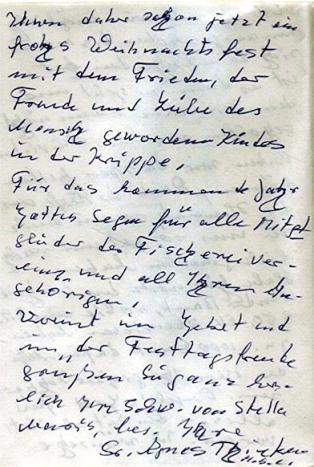 Ihnen daher schon jetzt ein
frohes Weihnachtsfest
mit dem Frieden, der
Freude und Liebe des
Mensch gewordenen Kindes
in der Krippe.
Für das kommende Jahr
Gottes Segen für alle Mitgl
glieder des Fischereiver-
eins und all Ihren An-
gehörigen,
Vereint im Gebet und
in der Festtagsfreude
grüßen Sie ganz herz-
lich Ihre Schw. von Stella
Maris, bes. Ihre
Sr. Agnes